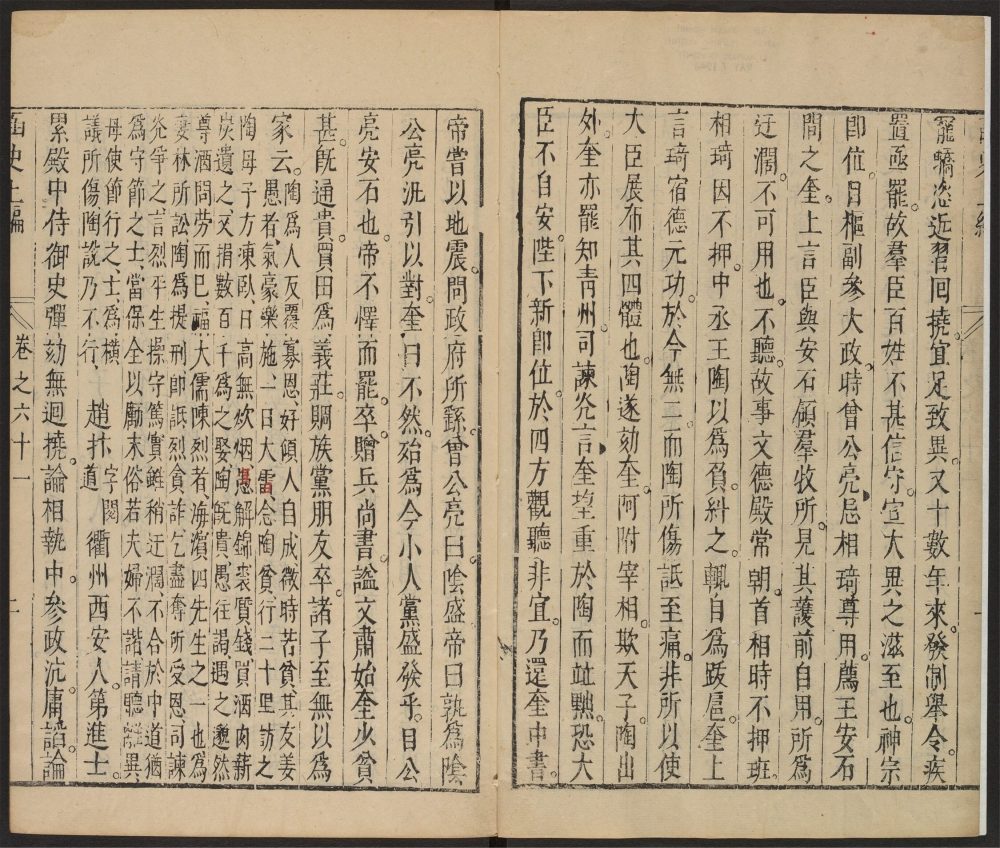 寵驕恣近習回撓宜足致異又十數年來發制舉令疾
置亟罷故羣臣百姓不甚信守宣大異之滋至也神宗
即位日樞副參大政時曾公亮忌相琦尊用薦王安石
間之奎上言臣與安石領羣牧所見其護前自用所為
迂濶不可用也不聽故事文德殿常朝首相時不押班
相琦因不押中丞王陶以為負糾之輒自為跋扈奎上
言琦宿德元功於今無二而陶所傷詆至痛非所以使
大臣展布其四體也陶遂劾奎阿附宰相欺天子陶出
外奎亦罷知青州司諫光言奎望重於陶而並黜恐大
臣不自安陛下新即位於四方觀聽非宜乃還奎中書
帝嘗以地震問政府所繇曾公亮曰陰盛帝曰孰為陰
公亮汎引以對奎曰不然殆為今小人黨盛發乎目公
亮安石也帝不懌而罷卒贈兵尚書謚文肅始奎少貧
甚既通貴買田為義莊賙族黨朋友卒諸子至無以為
家云陶為人反覆寡恩好傾人自成微時苦貧其友姜
愚者氣豪樂施一日大雪念陶貧行二十里訪之
陶母子方凍臥日高無炊烟愚解錦裘質錢買酒肉薪
炭遺之又捐數百千為之娶陶既貴愚往謁遇之邈然
尊酒問勞而已福大儒陳烈者海濱四先生之一也為
妻林所訟陶為提刑即詆烈貪詐乞盡奪所受恩司諫
光爭之言烈平生操守篤實雖稍迂濶不合於中道猶
為守節之士當保全以勵末俗若夫婦不諧請聽離異
毋使節行之士為橫
議所傷陶說乃不行
趙抃字閱道衢州西安人第進士
累殿中侍御史彈劾無迴撓論相執中參政沆庸諂論
函史上編 卷之六十一